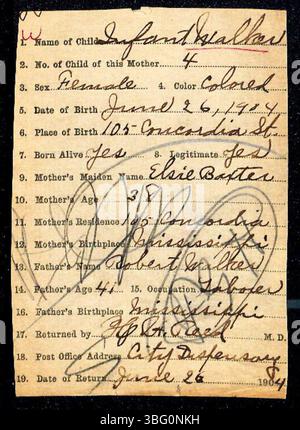 1. Name of Child Infant Walker
2. No. of Child of this Mother 4
3. Sex Female 4. Color Colored
5. Date of Birth June 26, 1904
6. Place of Birth 105 Concordia St.
7. Born Alive Yes 8. Legitimate Yes
9. Mother's Maiden Name Elsie Baxter
10. Mother's Age 38
11. Mother's Residence 105 Concordia
12. Mother's Birthplace Mississippi
13. Father's Name Robert Walker
14. Father's Age 41 15. Occupation Laborer
16. Father's Birthplace Mississippi
17. Returned by H. Reed M. D.
18. Post Office Address City Dispensary
19. Date of Return June 26 1904
alamy
Image ID: 3BG0NKH
www.alamy.com